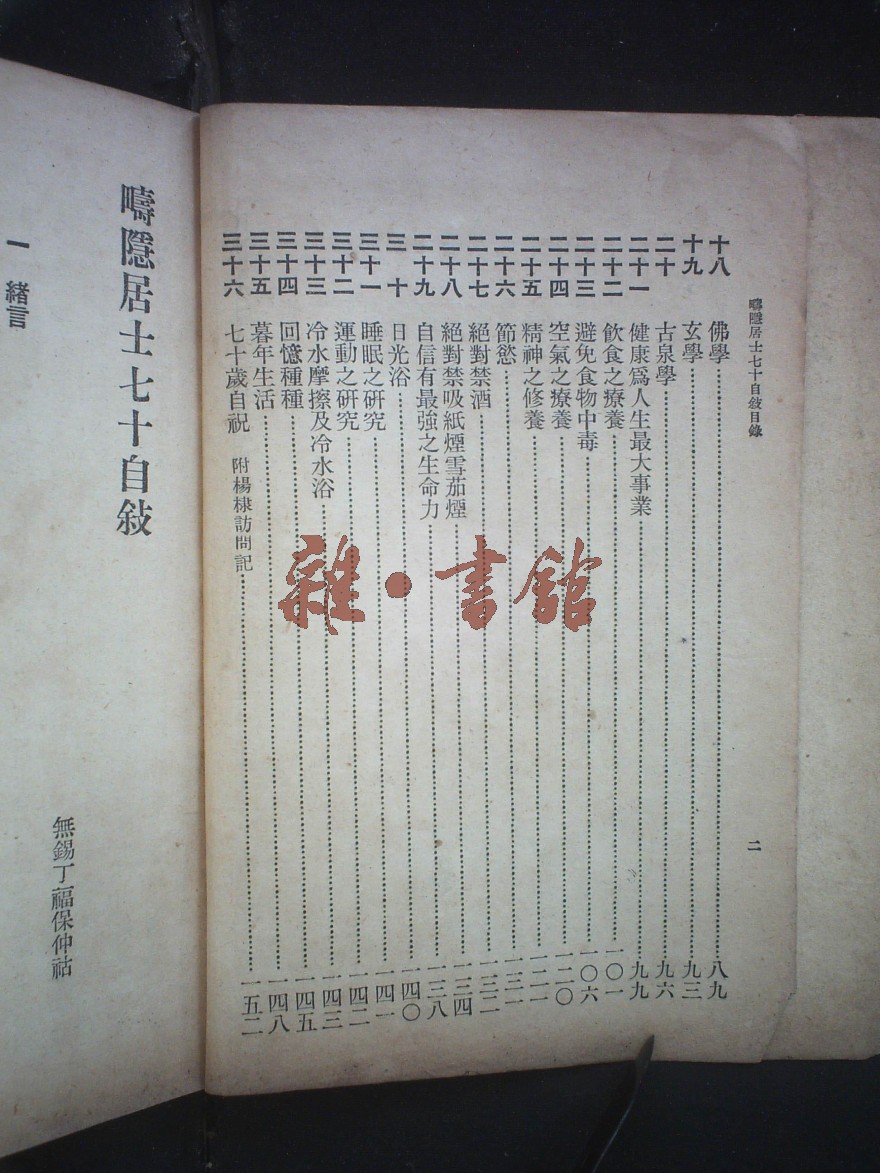 疇隱居士七十自敍目錄
二
十八 佛學 八九
十九 玄學 九三
二十 古泉學 九六
二十一 健康爲人生最大事業 九九
二十二 飲食之療養 一〇一
二十三 避免食物中毒 一〇六
二十四 空氣之療養 一二〇
二十五 精神之修養 一二一
二十六 節慾 一三一
二十七 絕對禁酒 一三二
二十八 絕對禁吸紙煙雪茄煙 一三四
二十九 自信有最強之生命力 一三八
三十 日光浴 一四〇
三十一 睡眠之研究 一四一
三十二 運動之研究 一四二
三十三 冷水摩擦及冷水浴 一四三
三十四 回憶種種 一四五
三十五 暮年生活 一四八
三十六 七十歲自祝 附楊棣訪問記 一五二
疇隱居士七十自敍
無錫丁福保仲祜
一 緒言
雜·書館